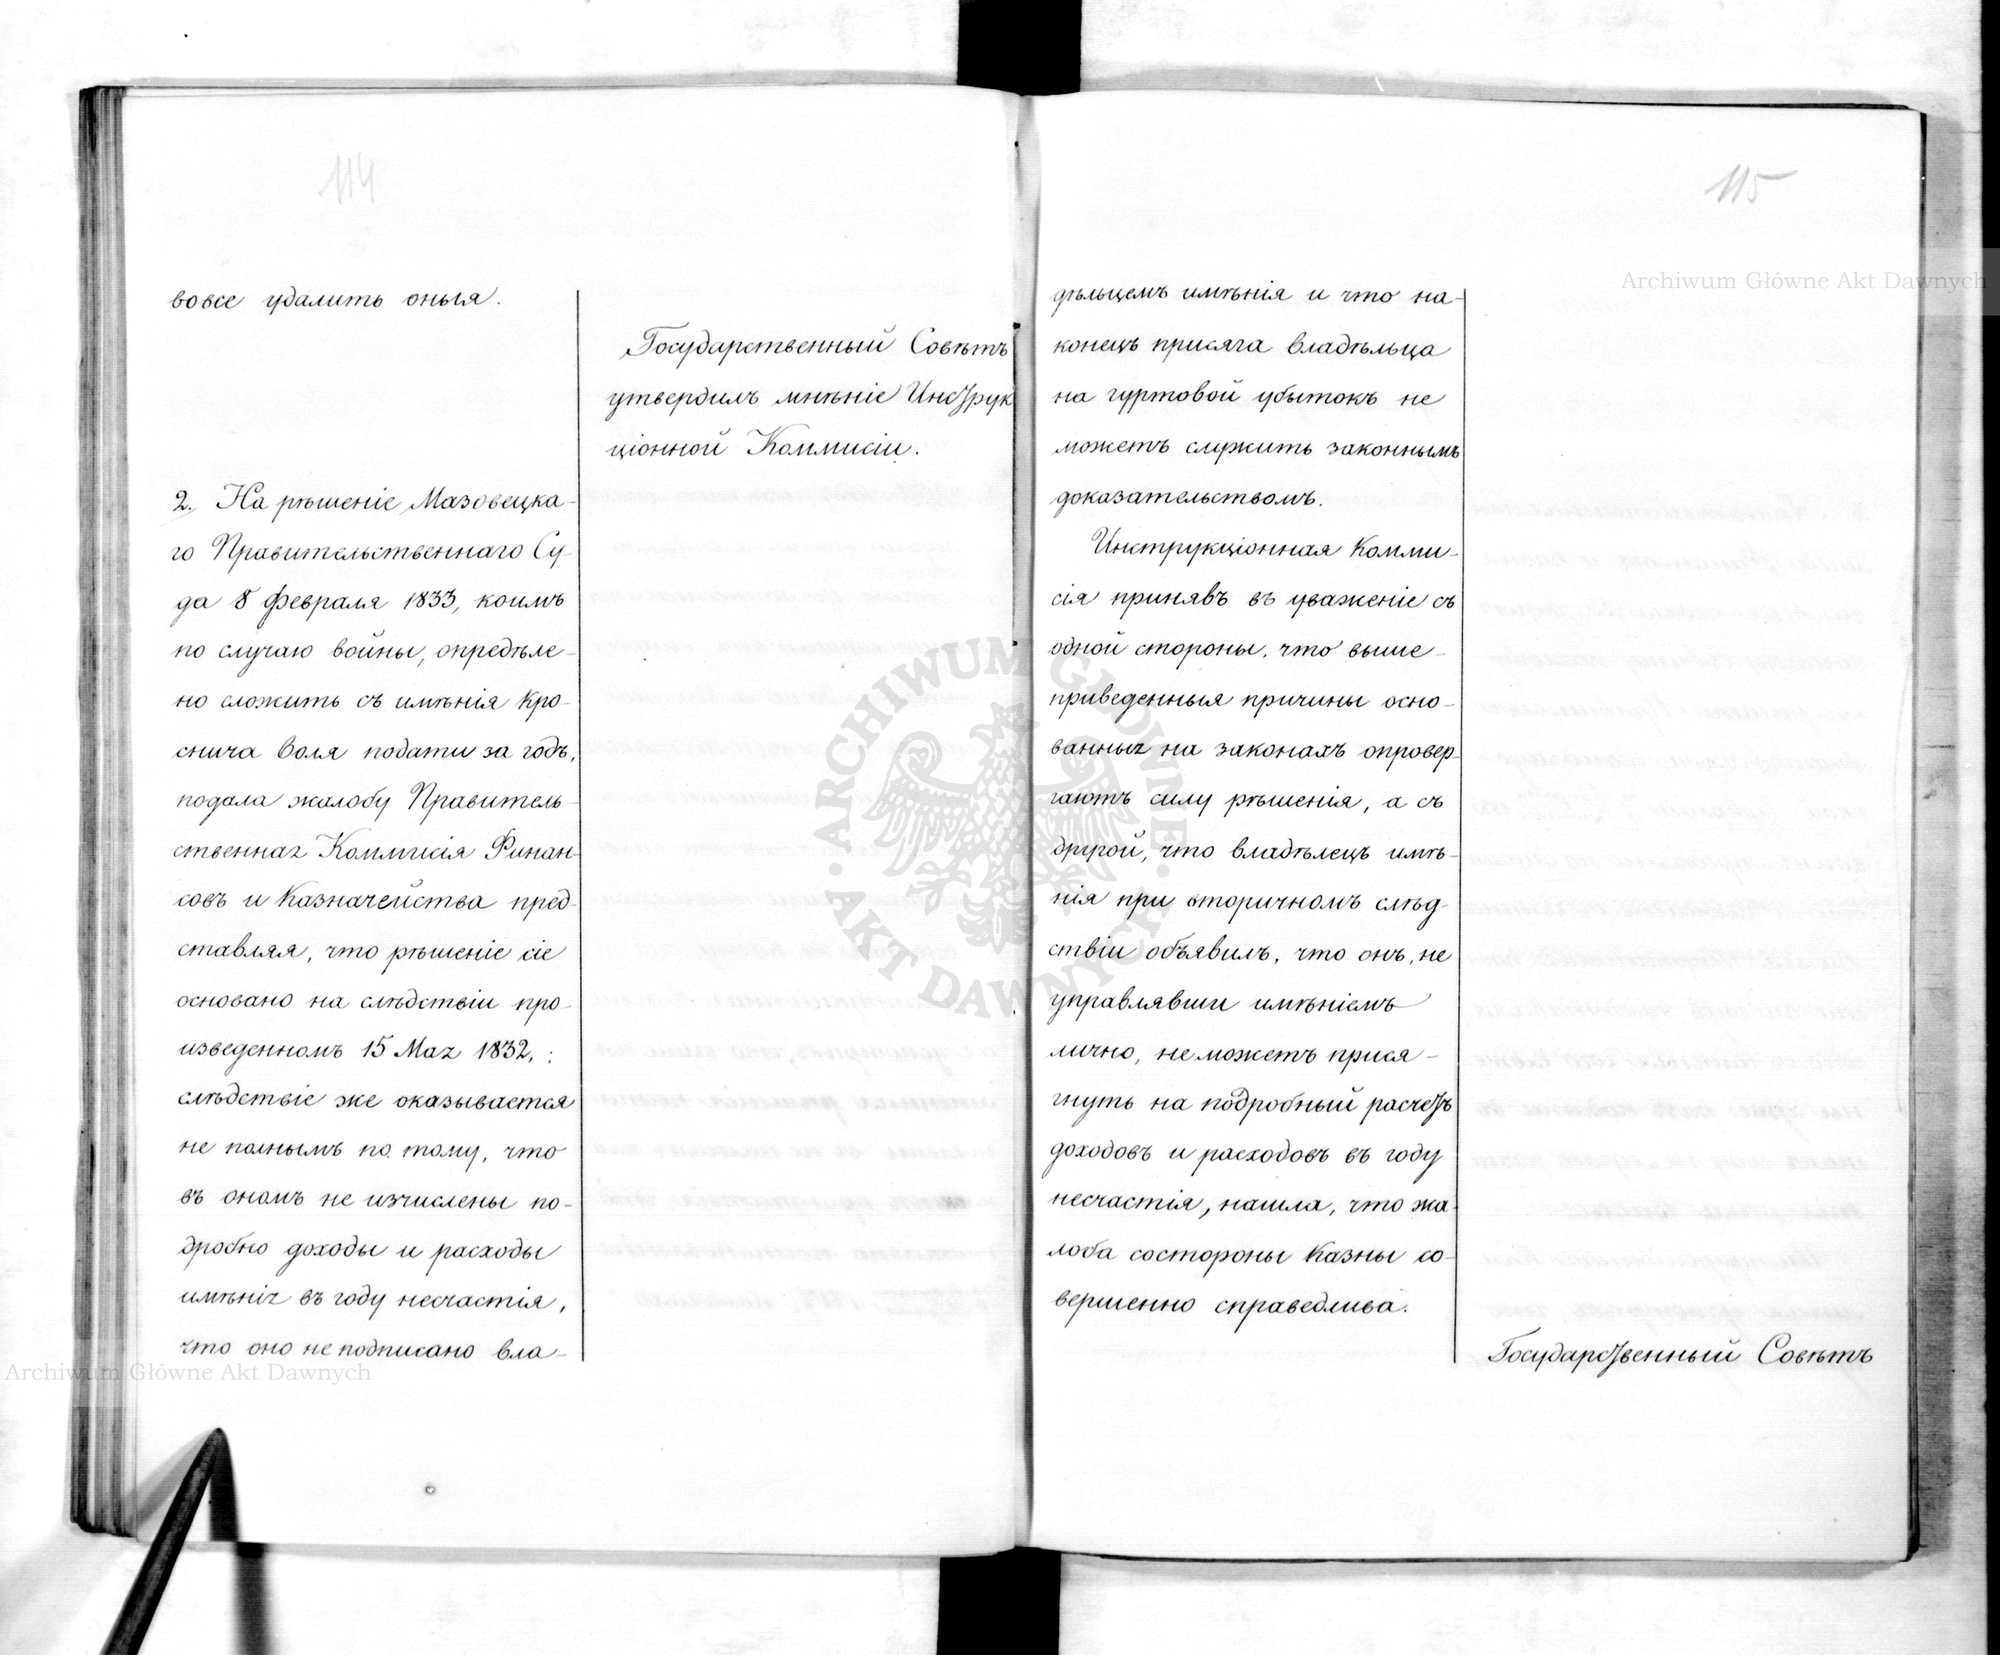 114
вовсе удалить оныя.
Государственный Совѣтъ
утвердилъ мнѣніе Инструк
ціонной Коммисіи.
2. На рѣшеніе Мазовецка-
го Правительственнаго Су-
да 8 Февраля 1833, коимъ
по случаю войны, опредѣле-
но сложить съ имѣнія Кро-
снича Воля подати за годъ,
подала жалобу Правитель-
ственная Коммисія Финан-
совъ и Казначейства пред-
ставляя, что рѣшеніе сіе
основано на слѣдствіи про-
изведенномъ 15 Мая 1832, ;
слѣдствіе же оказывается
не полнымъ по тому, что
въ ономъ не изчислены по-
дробно доходы и расходы
имѣнія въ году несчастія,
что оно не подписано вла-
115
дѣльцемъ имѣнія и что на-
конецъ присяга владѣльца
на гуртовой убытокъ не
можетъ служить законнымъ
доказательствомъ.
Инструкціонная Комми-
сія принявъ въ уваженіе съ
одной стороны, что выше-
приведенныя причины осно-
ванныя на законахъ опровер-
гаютъ силу рѣшенія, а съ
другой, что владѣлецъ имѣ-
нія при вторичномъ слѣд-
ствіи объявилъ, что онъ, не
управлявши имѣніемъ
лично, не можетъ прися-
гнуть на подробный расчетъ
доходовъ и расходовъ въ году
несчастія, нашла, что жа-
лоба состороны Казны со-
вершенно справедлива.
Государственный Совѣтъ
Archiwum Główne Akt Dawnych
Archiwum Główne Akt Dawnych
ARCHIWUM GŁÓWNE AKT DAWNYCH